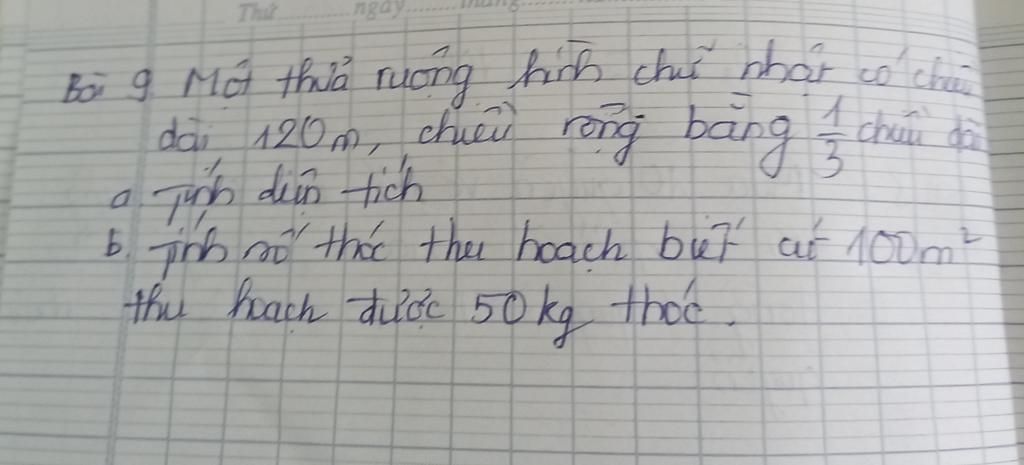 Thứ ngày tháng
Bài 9. Một thửa ruộng hình chữ nhật có chiều
dài 120m, chiều rộng bằng 1/3 chiều dài
a. Tính diện tích
b. Tính số thóc thu hoạch biết cứ 100m²
thu hoạch được 50kg thóc.